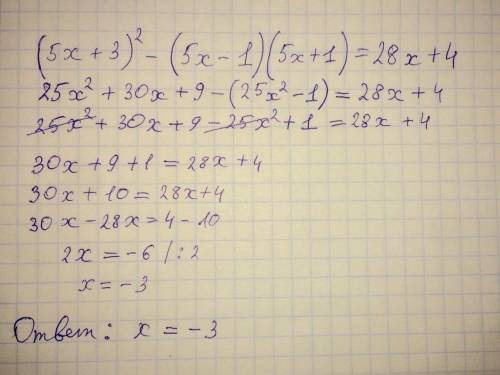 (5x+3)² - (5x-1)(5x+1) = 28x+4
25x² + 30x + 9 - (25x² - 1) = 28x + 4
25x² + 30x + 9 - 25x² + 1 = 28x + 4
30x + 9 + 1 = 28x + 4
30x + 10 = 28x + 4
30x - 28x = 4 - 10
2x = -6 /:2
x = -3
Ответ: x = -3